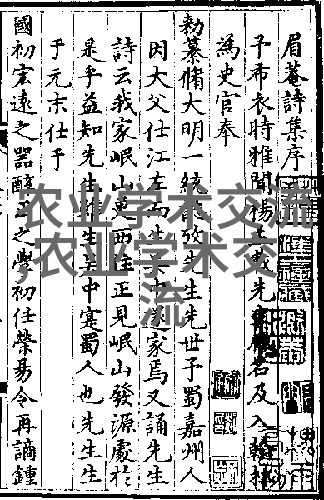 眉菴詩集序
予布衣時雅聞楊孟載先名及入翰林
為史官奉
勑纂脩大明一統攷先生先世予蜀嘉州人
因大父仕江左而生吳中家焉又誦先生
詩云我家岷山更西住正見岷山發源處於
是乎益知先生雖生吳中寔蜀人也先生生
于元末仕于
國初宏遠之器醇正之學初任榮昜令再謫鍾
农业学术交流
,农业学术交
流